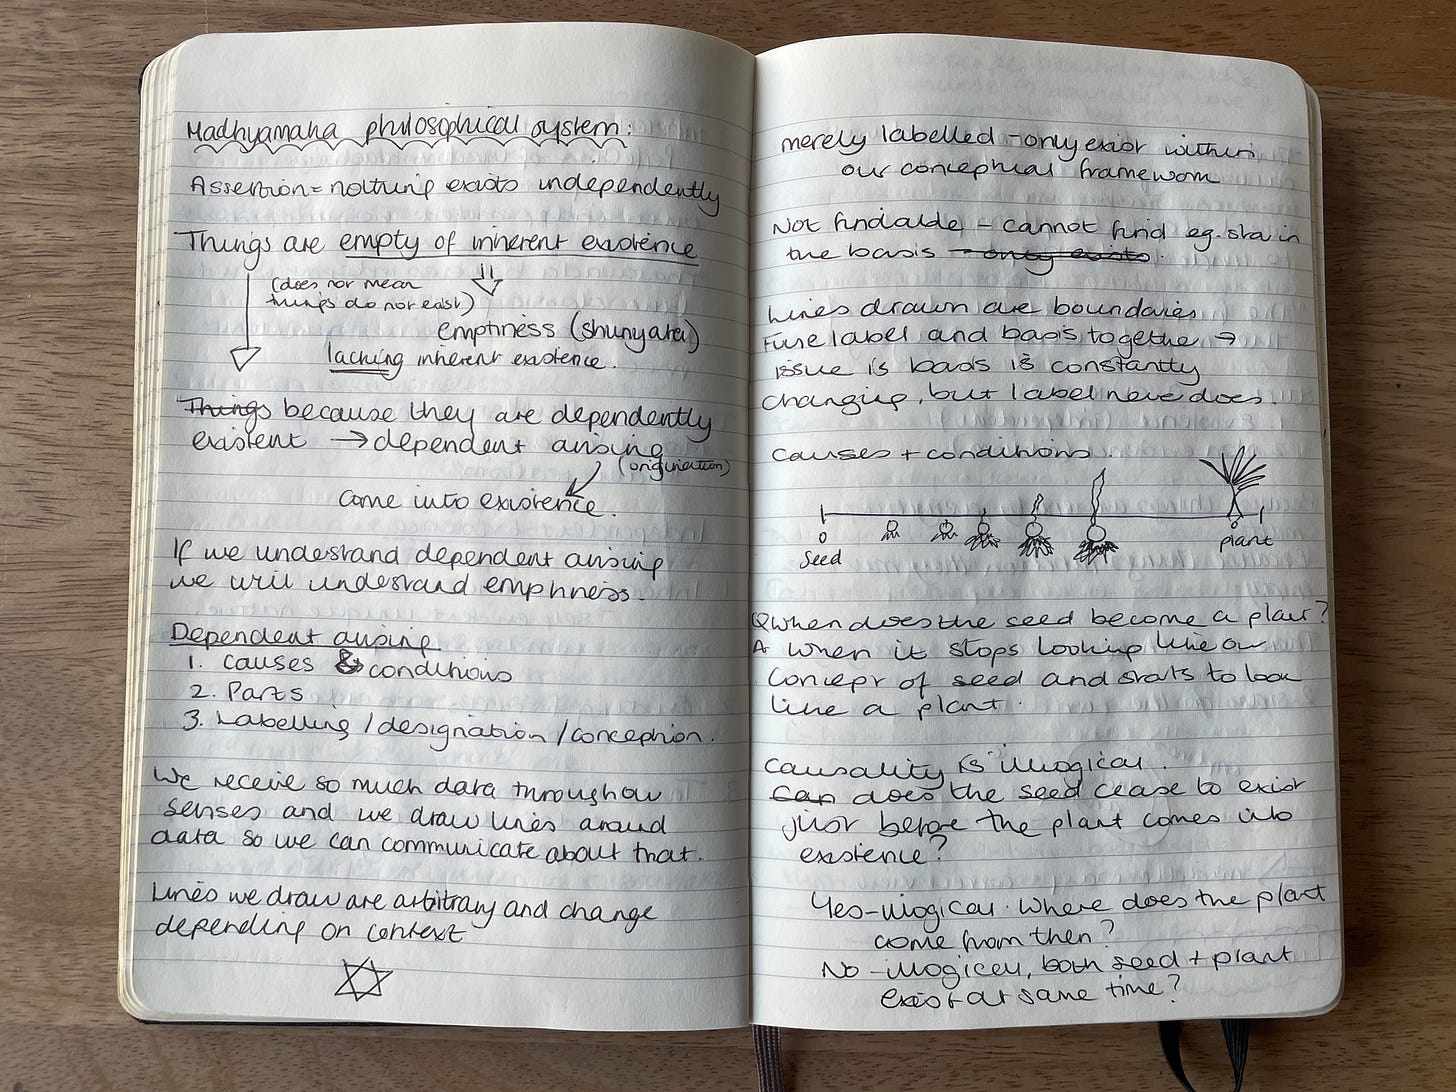 Madhyamaka philosophical system:
Assertion = nothing exists independently
Things are empty of inherent existence
(does not mean
things do not exist)
emptiness (shunyata)
lacking inherent existence.
Things because they are dependently
existent → dependent arising
(origination)
come into existence.
If we understand dependent arising
we will understand emptiness.
Dependent arising
1. causes & conditions
2. Parts
3. Labelling / designation / conception.
We receive so much data through our
senses and we draw lines around
data so we can communicate about that.
Lines we draw are arbitrary and change
depending on context
merely labelled - only exist within
our conceptual framework
Not findable - cannot find eg. star in
the basis - only exists.
Lines drawn are boundaries
Fuse label and basis together →
issue is basis is constantly
changing, but label never does.
causes + conditions.
Seed
plant
Q When does the seed become a plant?
A when it stops looking like our
concept of seed and starts to look
like a plant.
Causality is illogical.
Can does the seed cease to exist
just before the plant comes into
existence?
Yes - illogical. Where does the plant
come from then?
No - illogical, both seed + plant
exist at same time?